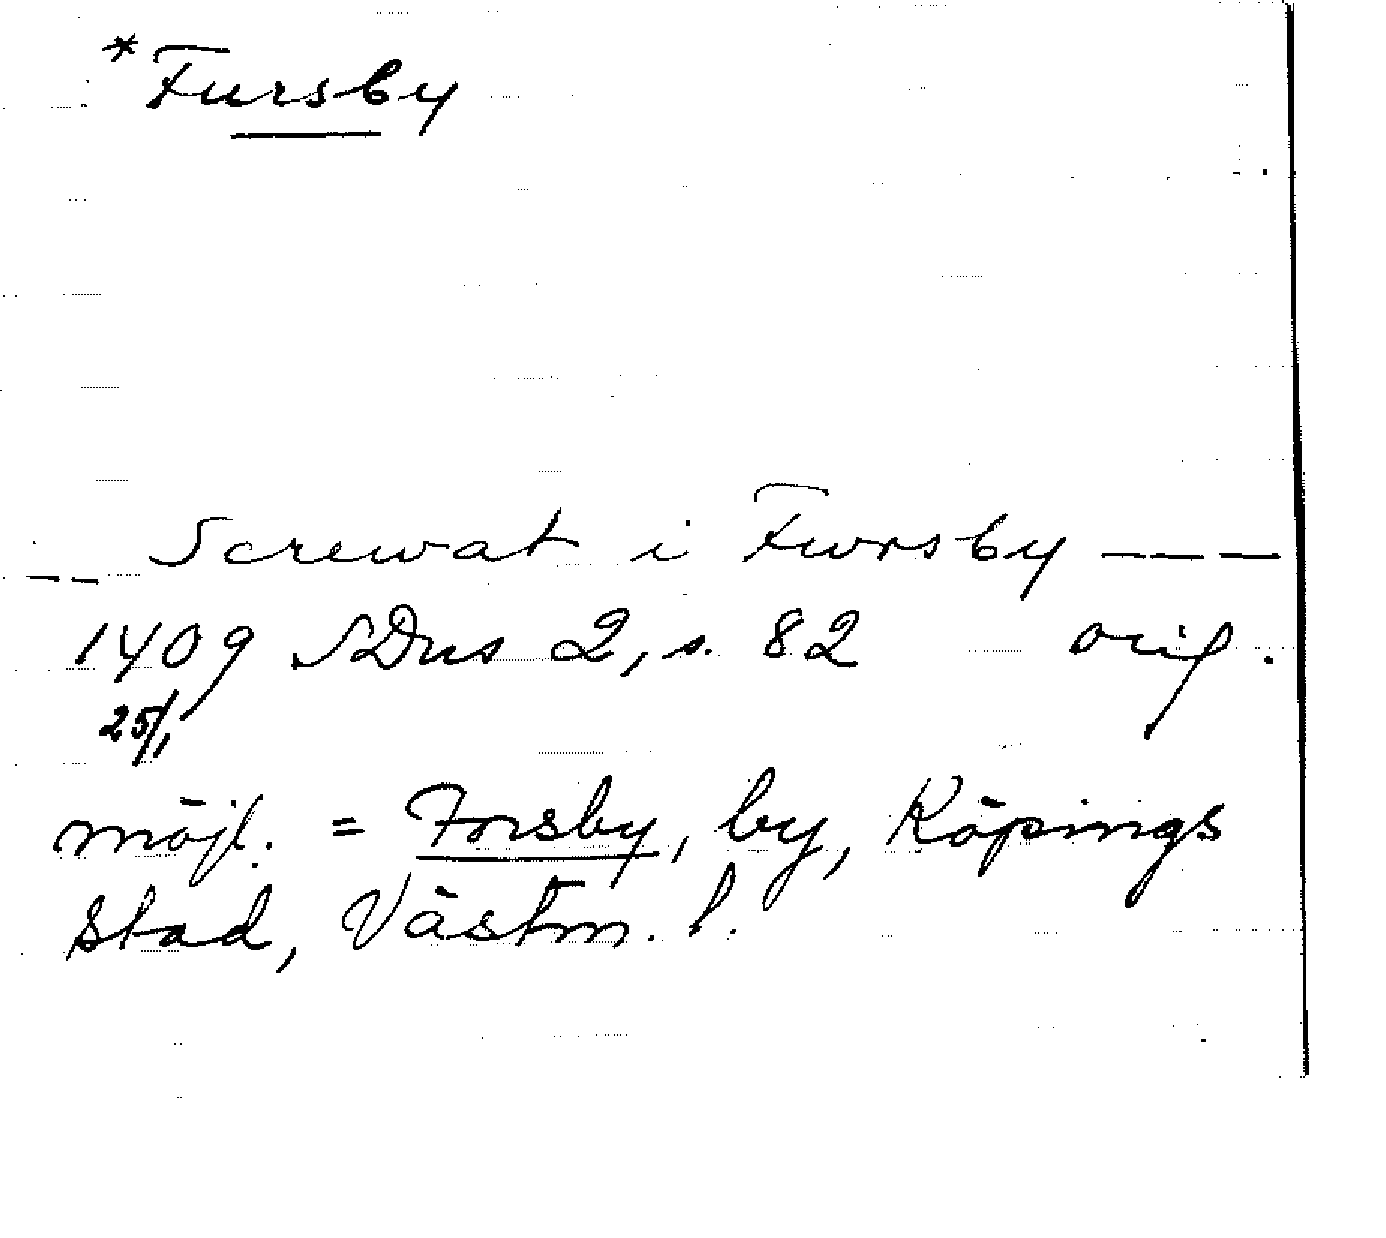 *Fursby
Screwat i Fwrsby ---
-- 
1409 SDns 2, s. 82 orig.
25/1
möjl. = Forsby, by, Köpings
stad, Västm. l.